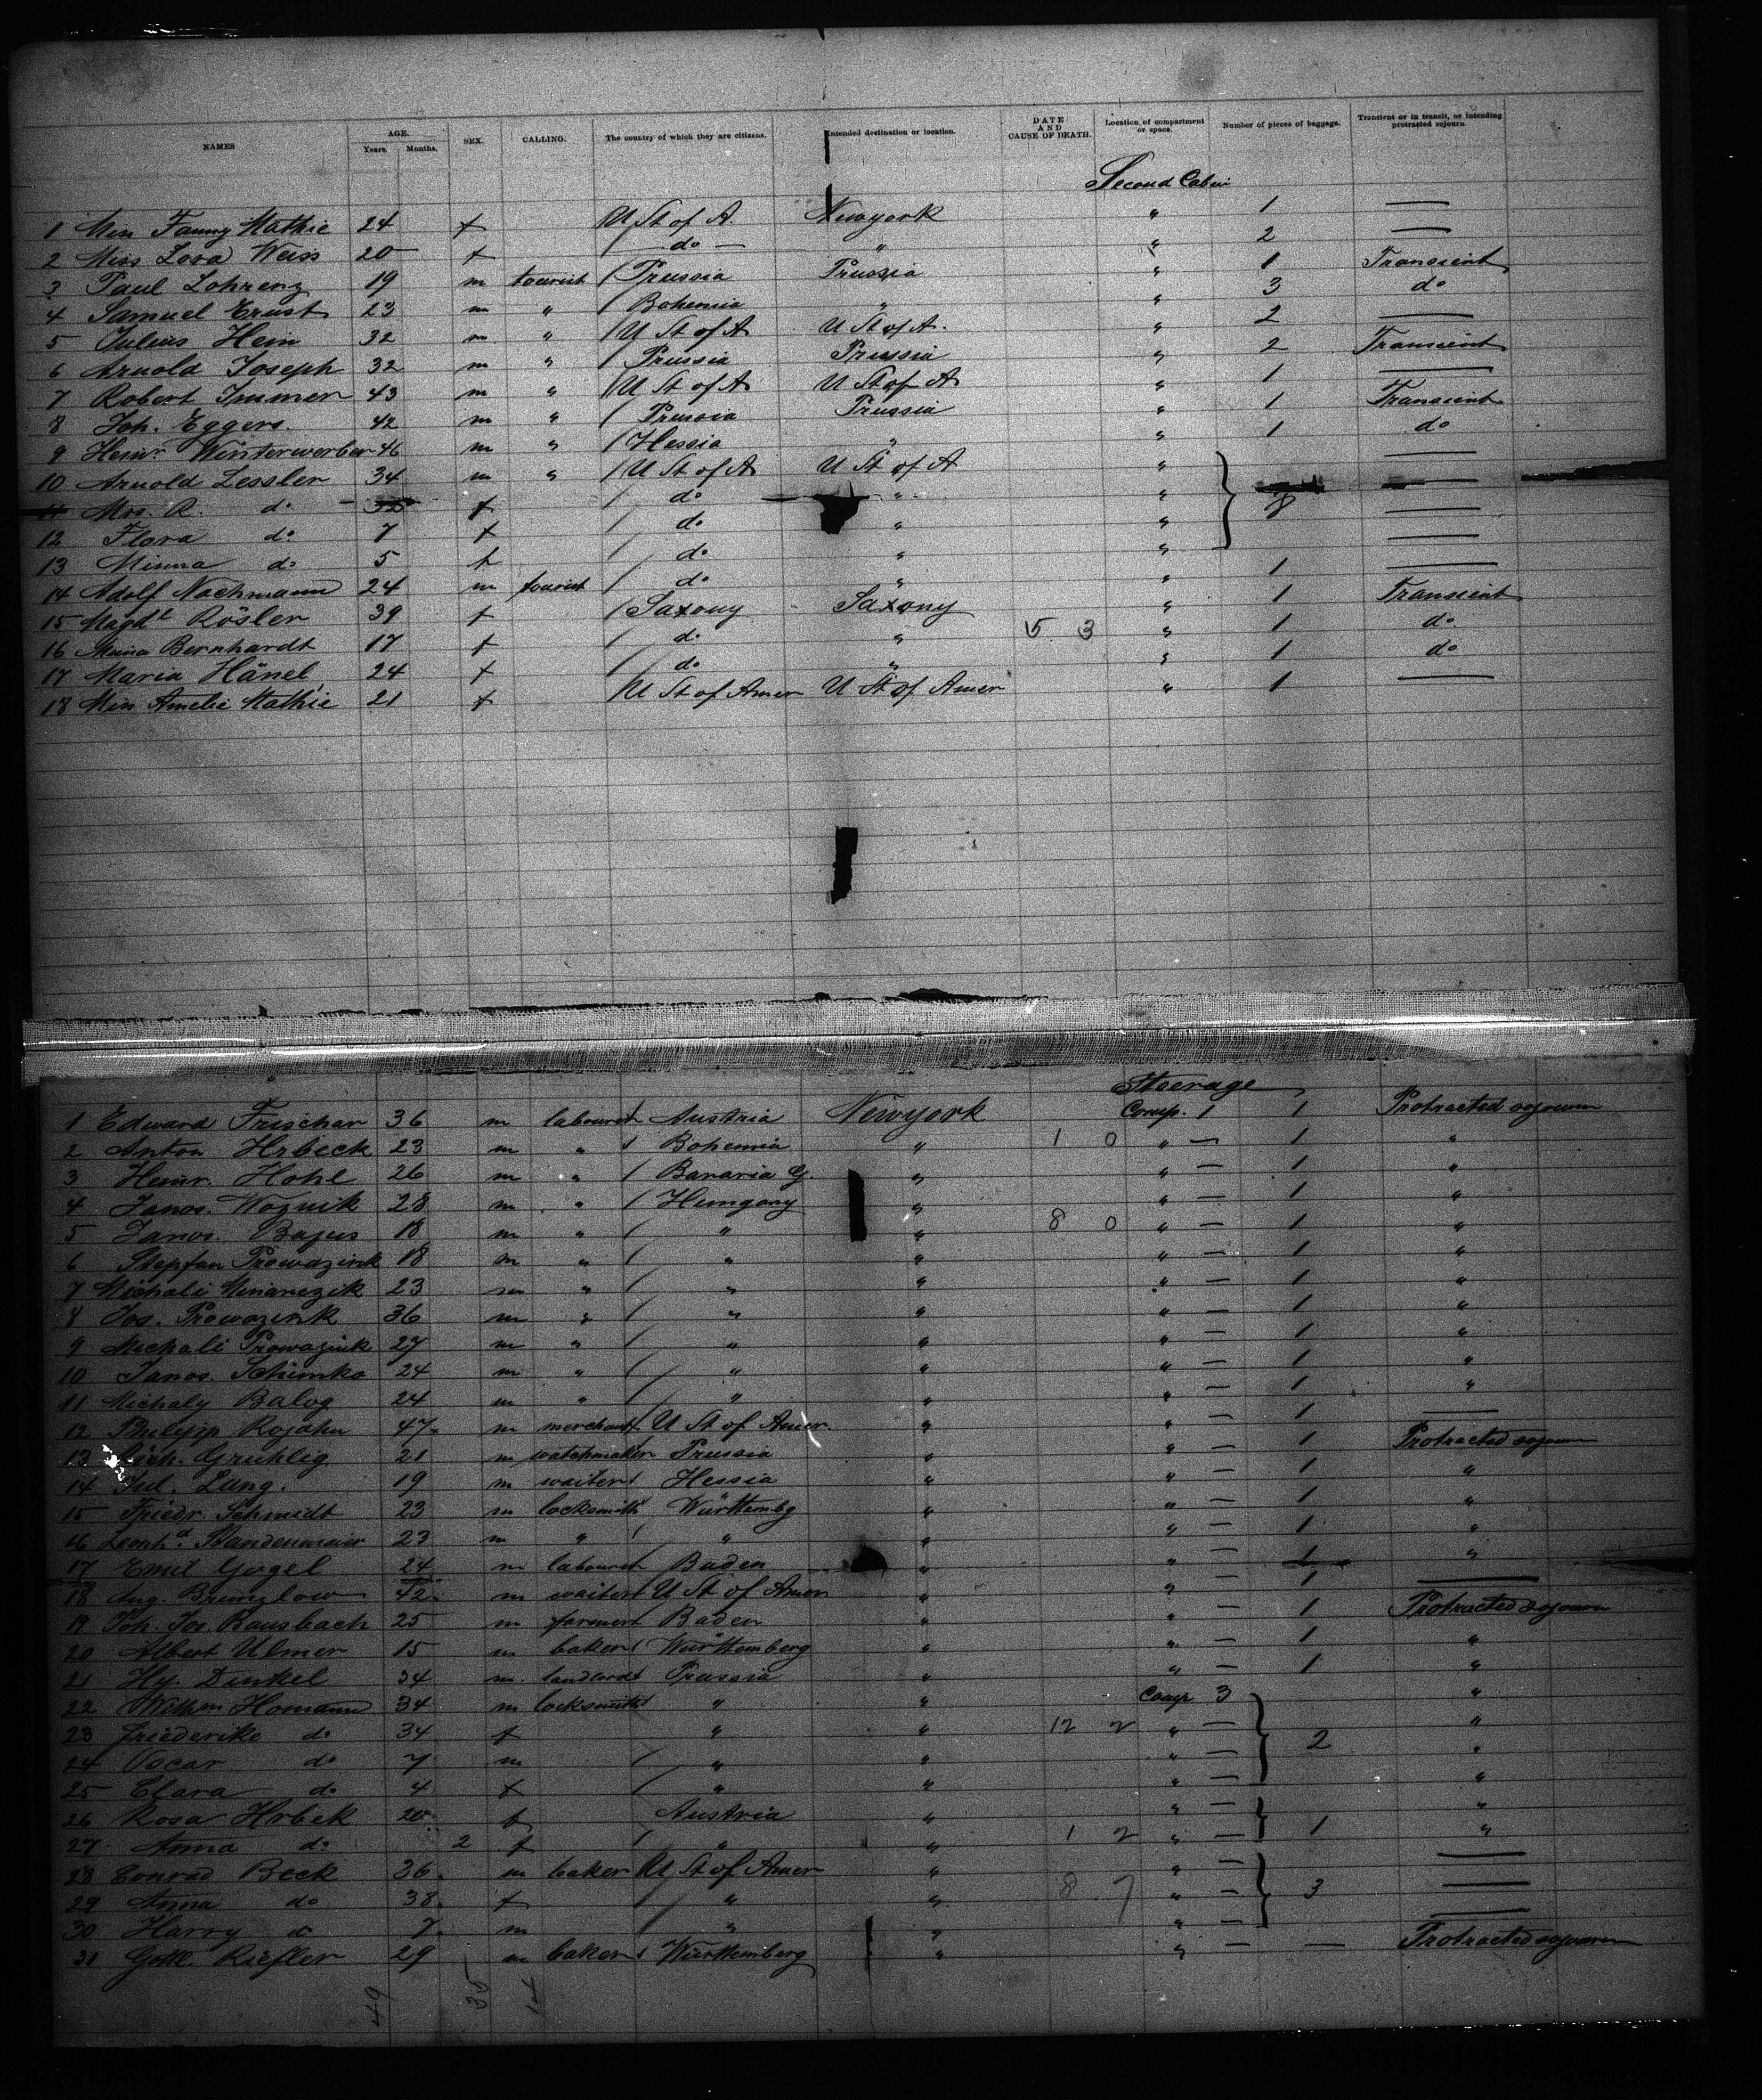 NAMES AGE. Years. Months. SEX. CALLING. The country of which they are citizens. Intended destination or location. DATE AND CAUSE OF DEATH. Location of compartment or space. Number of pieces of baggage. Transient or in transit, or intending protracted sojourn.
Second Cabin
1 Miss Fanny Mathie 24 f U St of A. Newyork " 1 —
2 Miss Lora Weiss 20 f — do — " " 2 —
3 Paul Lohrenz 19 m tourist / Prussia Prussia " 1 Transient
4 Samuel Ernst 23 m " / Bohemia " " 3 do
5 Julius Hein 32 m " / U St of A U St of A. " 2 —
6 Arnold Joseph 32 m " / Prussia Prussia " 2 Transient
7 Robert Immer 43 m " / U St of A U St of A " 1 —
8 Joh. Eggers 42 m " / Prussia Prussia " 1 Transient
9 Heinr. Winterwerber 46 m " / Hessia " " 1 do
10 Arnold Lessler 34 m " / U St of A U St of A " —
11 Mrs. R. do f / do " " 8 —
12 Flora do 7 f / do " " —
13 Minna do 5 f / do " " —
14 Adolf Nachmann 24 m tourist / do " " 1 —
15 Magdt Rösler 39 f / Saxony Saxony " 1 Transient
16 Bernhardt 17 f / do " 5 3 " 1 do
17 Maria Hänel 24 f / do " " 1 do
18 Miss Amelie Mathie 21 f / U St of Amer U St of Amer " 1 —
Steerage
1 Edward Frischer 36 m labourer / Austria Newyork Comp. 1 1 Protracted sojourn
2 Anton Hrbeck 23 m " / Bohemia " 1 0 " — 1 "
3 Heinr. Hohl 26 m " / Bavaria " " — 1 "
4 Janos. Woznik 28 m " / Hungary " " — 1 "
5 Janos. Bajus 18 m " / " " 8 0 " — 1 "
6 Stepfan Prowazink 18 m " / " " " — 1 "
7 Michali 23 m " / " " " — 1 "
8 Jos. Prowazink 36 m " / " " " — 1 "
9 Michali Prowazink 27 m " / " " " — 1 "
10 Janos. Schimko 24 m " / " " " — 1 "
11 Michaly Balog 24 m " / " " " — 1 "
12 Philipp Rojahn 47 m merchant / U St of Amer. " " — 1 —
13 Gruhlig 21 m watchmaker Prussia " " — 1 Protracted sojourn
14 Jul. Lang. 19 m waiter / Hessia " " — 1 "
15 Friedr. Schmidt 23 m locksmith Württembg " " — 1 "
16 Leonhd. Standenmaier 23 m " / " " " — 1 "
17 Emil Gugel 24 m labourer Baden " " — 1 "
18 Aug. Brunzlow 42 m waiter / U St of Amer " " — 1 —
19 Joh. Jos. Bausbach 25 m farmer / Baden " " — 1 Protracted sojourn
20 Albert Ulmer 15 m baker / Württemberg " " — 1 "
21 Hy. Dinkel 34 m landlord Prussia " " — 1 "
22 Wilhm Homann 34 m locksmith " " Comp 3 "
23 Friederike do 34 f " " 12 2 " — 2 "
24 Oscar do 7 m / " " " — "
25 Clara do 4 f / " " " — "
26 Rosa Hrbek 20 f Austria " " — 1 "
27 Anna do 2 f / " " 1 2 " — "
28 Conrad Beck 36 m baker / U St of Amer " " — —
29 Anna do 38 f / " " 8 7 " — 3 —
30 Harry do 7 m / " " " — —
31 Gottl. Riefler 29 m baker / Württemberg " " — — Protracted sojourn
49 35 14